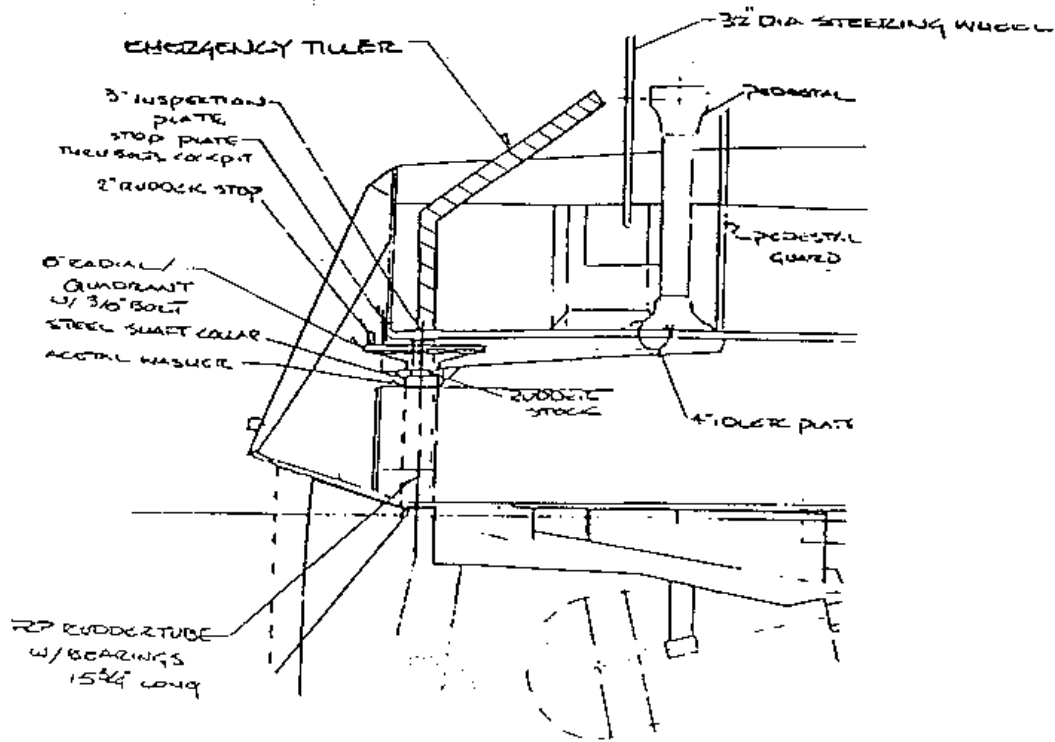 32" DIA STEERING WHEEL
EMERGENCY TILLER
3" INSPECTION
PLATE
STOP PLATE
THRU BOLTS COCKPIT
2" RUDDER STOP
PEDESTAL
PEDESTAL
GUARD
RADIAL
QUADRANT
W/ 3/8" BOLT
STEEL SHAFT COLLAR
ACETAL WASHER
RUDDER
STOCK
4" IDLER PLATE
RUDDERTUBE
W/ BEARINGS
15 3/4" LONG